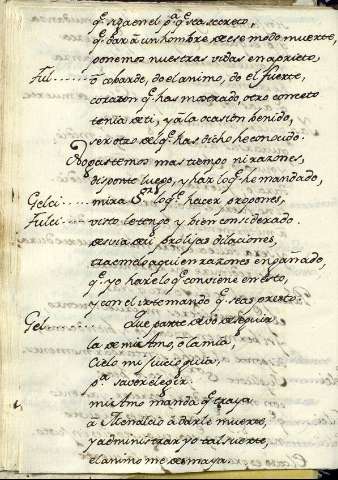 q̃ siga en el p.ª q̃ sea secreto,
q̃ dar à un hombre de ese modo muerte,
ponemos nuestras vidas en aprieto,
Ful....... ò cobarde, do el animo, do el fuerte,
corazon q̃ has mostrado, otro conceto
tenia de ti, y à la ocasion benido,
ser otro del q̃ has dicho he conocido.
No gastemos mas tiempo ni razones,
disponte luego, y haz lo q̃ he mandado,
Gelci..... mira S.or lo q̃ hacer propones,
Fulci..... visto lo tengo y bien considerado.
desvia de ti prolijas dilaciones,
traemelo aqui en razones enpañado,
q̃ yo harè lo q̃ conviene en esto,
y con el irte mando q̃ seas presto.
Gel....... Que parte debo de seguir
la de mi Amo, ò la mia,
Cielo mi juicio guia,
p.ª saver elegir.
mi Amo manda q̃ traya
à Acnalcio à darle muerte,
y administrar yo tal suerte,
el animo me desmaya.